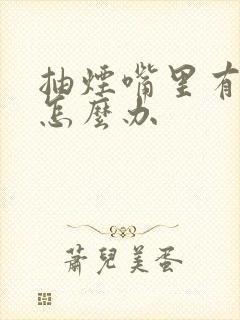 抽煙嘴里有
怎麼办
蕭兒美蛋